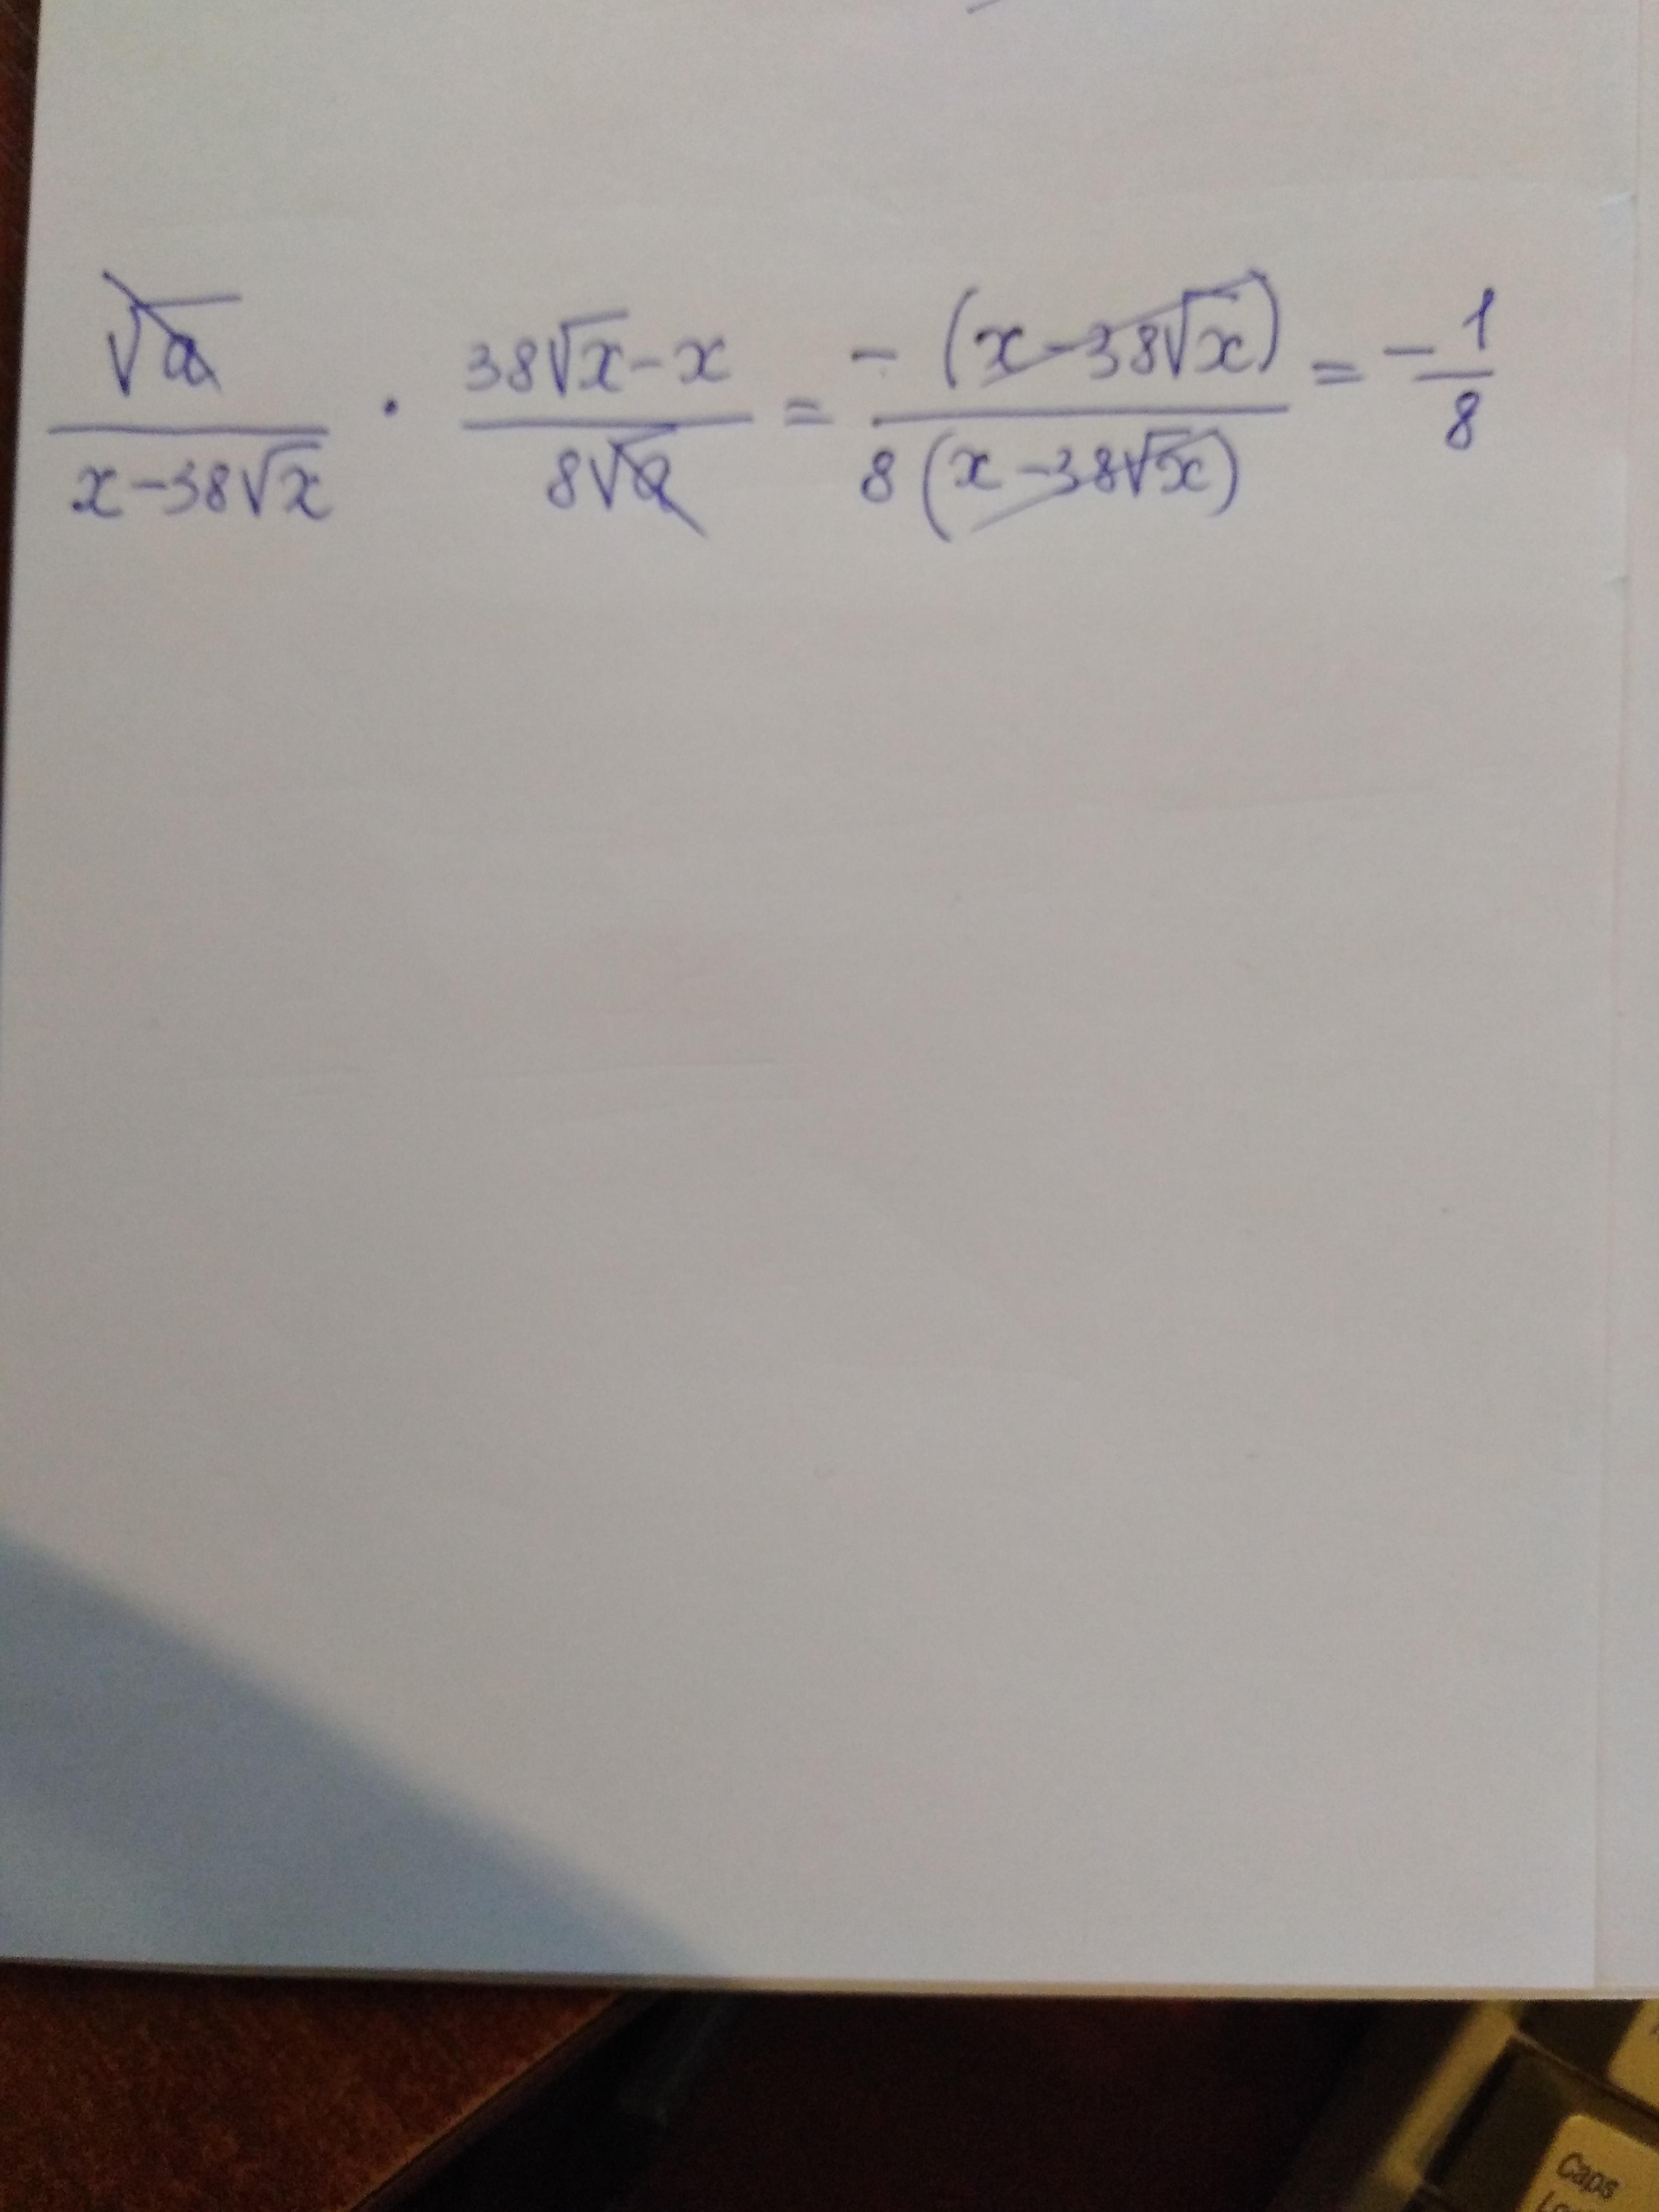 √a / (x-38√x) · (38√x-x) / (8√a) = -(x-38√x) / (8(x-38√x)) = -1/8
Caps